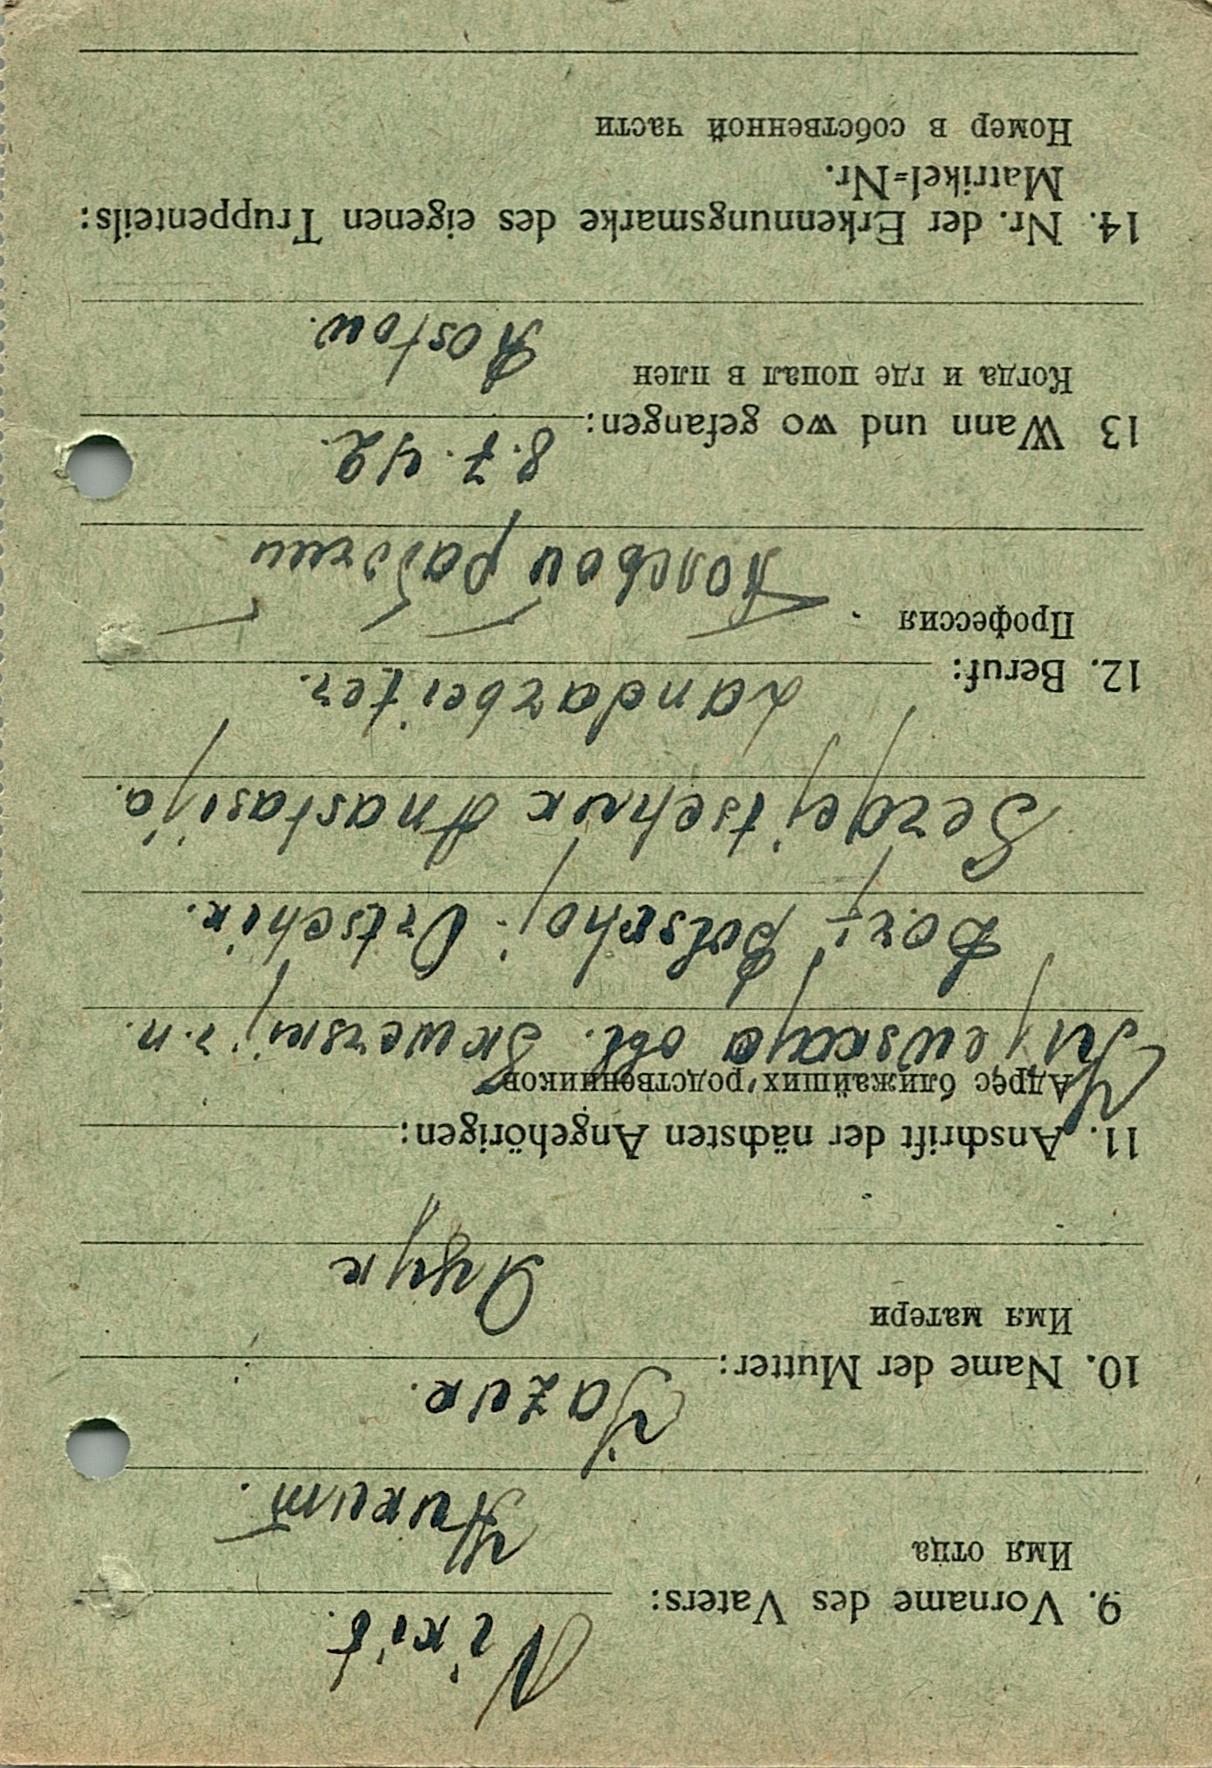 9. Vorname des Vaters: Nikit.
Имя отца Никит.
Jazuk.
10. Name der Mutter:
Имя матери Яцук
11. Anschrift der nächsten Angehörigen:
Адрес ближайших родственников
Kijewskaja obl. Skwerskij r.n.
Bolschoj Ortschik.
Sergejtschuk Anastasija.
12. Beruf: Landarbeiter.
Профессия Полевой рабочий
13 Wann und wo gefangen: 8.7.42.
Когда и где попал в плен Rostow.
14. Nr. der Erkennungsmarke des eigenen Truppenteils:
Matrikel=Nr.
Номер в собственной части